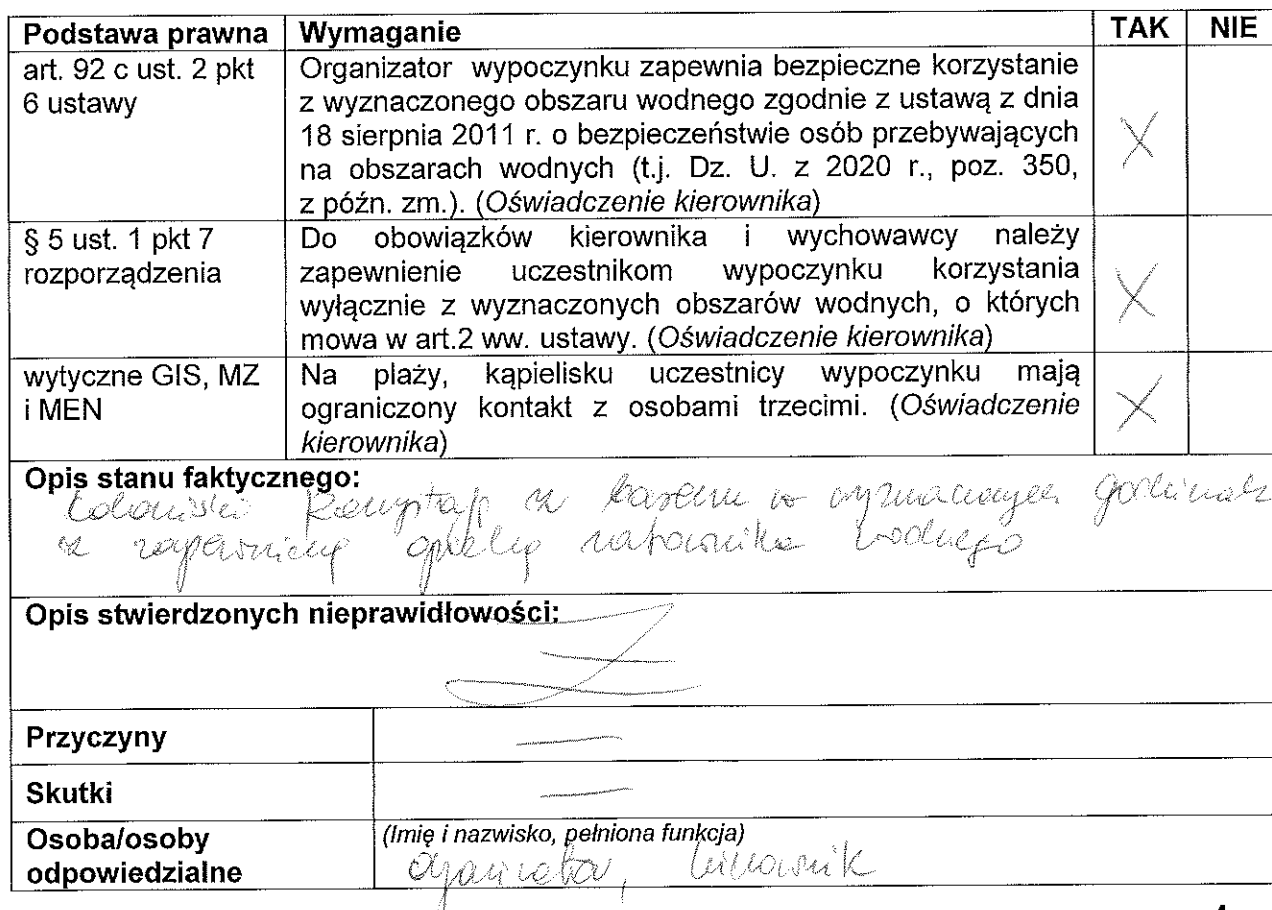 Podstawa prawna Wymaganie TAK NIE
art. 92 c ust. 2 pkt
6 ustawy
Organizator wypoczynku zapewnia bezpieczne korzystanie
z wyznaczonego obszaru wodnego zgodnie z ustawą z dnia
18 sierpnia 2011 r. o bezpieczeństwie osób przebywających
na obszarach wodnych (t.j. Dz. U. z 2020 r., poz. 350,
z późn. zm.). (Oświadczenie kierownika)
X
§ 5 ust. 1 pkt 7
rozporządzenia
Do obowiązków kierownika i wychowawcy należy
zapewnienie uczestnikom wypoczynku korzystania
wyłącznie z wyznaczonych obszarów wodnych, o których
mowa w art.2 ww. ustawy. (Oświadczenie kierownika)
X
wytyczne GIS, MZ
i MEN
Na plaży, kąpielisku uczestnicy wypoczynku mają
ograniczony kontakt z osobami trzecimi. (Oświadczenie
kierownika)
X
Opis stanu faktycznego:
koloniści korzystają z basenu w wyznaczonych godzinach
z zapewnioną opieką ratownika wodnego
Opis stwierdzonych nieprawidłowości:
Przyczyny —
Skutki —
Osoba/osoby
odpowiedzialne
(Imię i nazwisko, pełniona funkcja)
organizator, kierownik